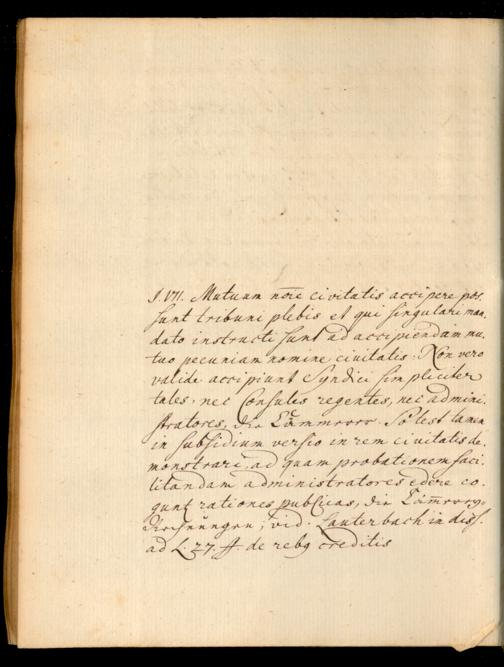 §. VII. Mutuum nōīē civitatis accipere pos-
sunt tribuni plebis et qui singulari man-
dato instructi sunt ad accipiendam mu-
tuo pecuniam nomine civitatis. Non vero
valide accipiunt Syndici simpliciter
tales, nec Consules regentes, nec admini-
stratores, die Cämmerer. Solest tamen
in subsidium versio in rem civitatis de-
monstrari, ad quam probationem faci-
litandam administratores edere co-
gunt rationes publicas, die Cam̄erey-
Rechnungen; vid. Lauterbach in diss.
ad L. 27. ff. de rebq creditis